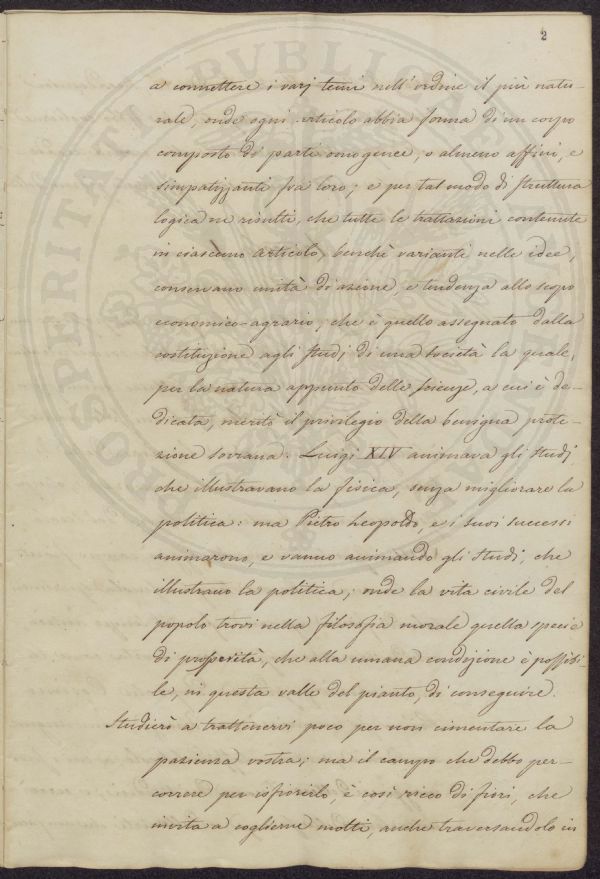 2
a connettere i varj temi nell'ordine il più natu-
rale, onde ogni articolo abbia forma di un corpo
composto di parti omogenee, o almeno affini, e
simpatizzanti fra loro; e per tal modo di struttura
logica ne risulti, che tutte le trattazioni contenute
in ciascuno articolo, benchè varianti nelle idee,
conservano unità di azione, e tendenza allo scopo
economico-agrario, che è quello assegnato dalla
costituzione agli studj di una società la quale,
per la natura appunto delle scienze, a cui è de-
dicata, meritò il privilegio della benigna prote-
zione sovrana. Luigi XIV animava gli studj
che illustravano la fisica, senza migliorare la
politica: ma Pietro Leopoldo, e i suoi successi
animarono, e vanno animando gli studi, che
illustrano la politica; onde la vita civile del
popolo trovi nella filosofia morale quella specie
di prosperità, che alla umana condizione è possibi-
le, in questa valle del pianto, di conseguire.
Studierò a trattenervi poco per non cimentare la
pazienza vostra; ma il campo che debbo per-
correre per isfiorirlo, è così ricco di fiori, che
invita a coglierne molti, anche traversandolo in
PROSPERITATI PUBLICAE AUGENDAE